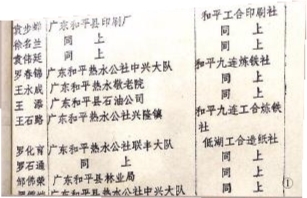 袁步婵 广东和平县印刷厂 和平工合印刷社
徐名兰 同上 同上
袁偕廷 同上 同上
罗春锦 广东和平热水公社中兴大队 和平九连炼铁社
王水成 广东和平热水敬老院 同上
王添 广东和平县石油公司 同上
王石路 广东和平热水公社兴隆镇 和平九连工合炼铁社
罗化育 广东和平热水公社联丰大队 低湖工合造纸社
罗石通 同上 同上
邹佛荣 广东和平县林业局 同上
广东和平县热水公社中兴大队 同上
①